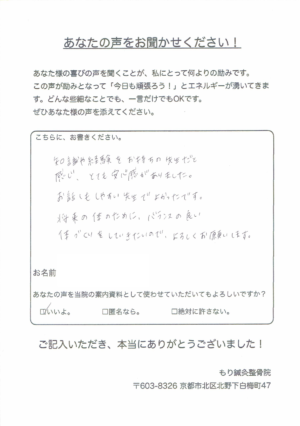 あなたの声をお聞かせください！
あなた様の喜びの声を聞くことが、私にとって何よりの励みです。
この声が励みとなって「今日も頑張ろう！」とエネルギーが湧いてきま
す。どんな些細なことでも、一言だけでもOKです。
ぜひあなた様の声を添えてください。
こちらに、お書きください。
知識や経験をお持ちの先生だと
感じ、とても安心感がありました。
お話しもしやすい先生でよかったです。
将来の体のために、バランスの良い
体づくりをしていきたいので、よろしくお願いします。
お名前
あなたの声を当院の案内資料として使わせていただいてもよろしいですか？
☑いいよ。 □匿名なら。 □絶対に許さない。
ご記入いただき、本当にありがとうございました！
もり鍼灸整骨院
〒603-8326 京都市北区北野下白梅町47